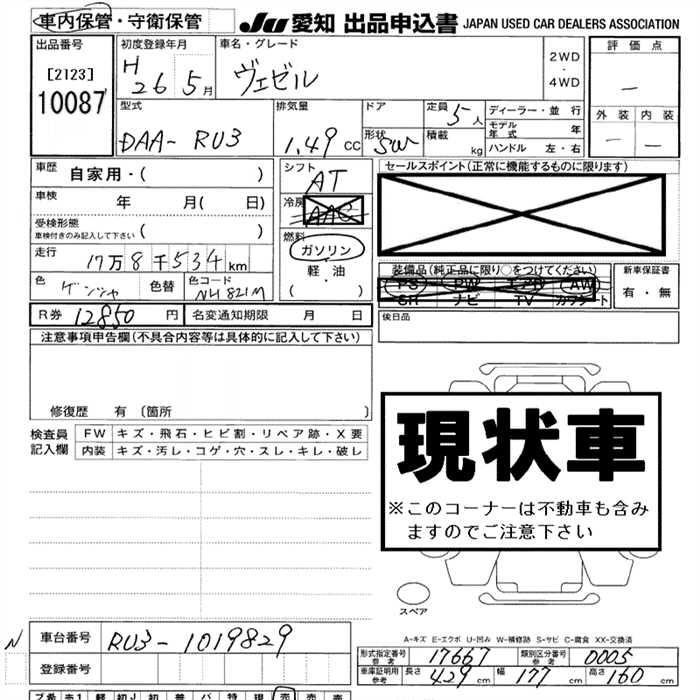 車内保管・守衛保管
JU 愛知 出品申込書 JAPAN USED CAR DEALERS ASSOCIATION
出品番号
[2123]
10087
初度登録年月
H 26 5月
車名・グレード
ヴェゼル
2WD
・
4WD
評価点
―
外装 内装
― ―
型式
DAA-RU3
排気量
1.49 cc
ドア
形状 SW
定員 5人
積載 kg
ディーラー・並行
モデル年式 年
ハンドル 左・右
車歴 自家用・( )
車検 年 月( 日)
受検形態
車検付きのみ記入して下さい ( )
走行 17万8千534km
色 ゲンシャ 色替 色コード NH821M
シフト AT
冷房 AAC
燃料
ガソリン
・
軽・油
( )
セールスポイント(正常に機能するものに限ります)
装備品(純正品に限り○をつけてください)
PS PW エアB AW
SR ナビ TV カワシート
新車保証書
有・無
R券 12850 円 名変通知期限 月 日
後日品
注意事項申告欄(不具合内容等は具体的に記入して下さい)
修復歴 有 〔箇所 〕
検査員記入欄
FW キズ・飛石・ヒビ割・リペア跡・X要
内装 キズ・汚レ・コゲ・穴・スレ・キレ・破レ
現状車
※このコーナーは不動車も含み
ますのでご注意下さい
スペア
A-キズ E-エクボ U-凹み W-補修跡 S-サビ C-腐食 XX-交換済
N
車台番号 RU3-1019829
登録番号
形式指定番号 参考 17667 類別区分番号 参考 0005
車庫証明用 参考 長さ 429 cm 幅 177 cm 高さ 160 cm